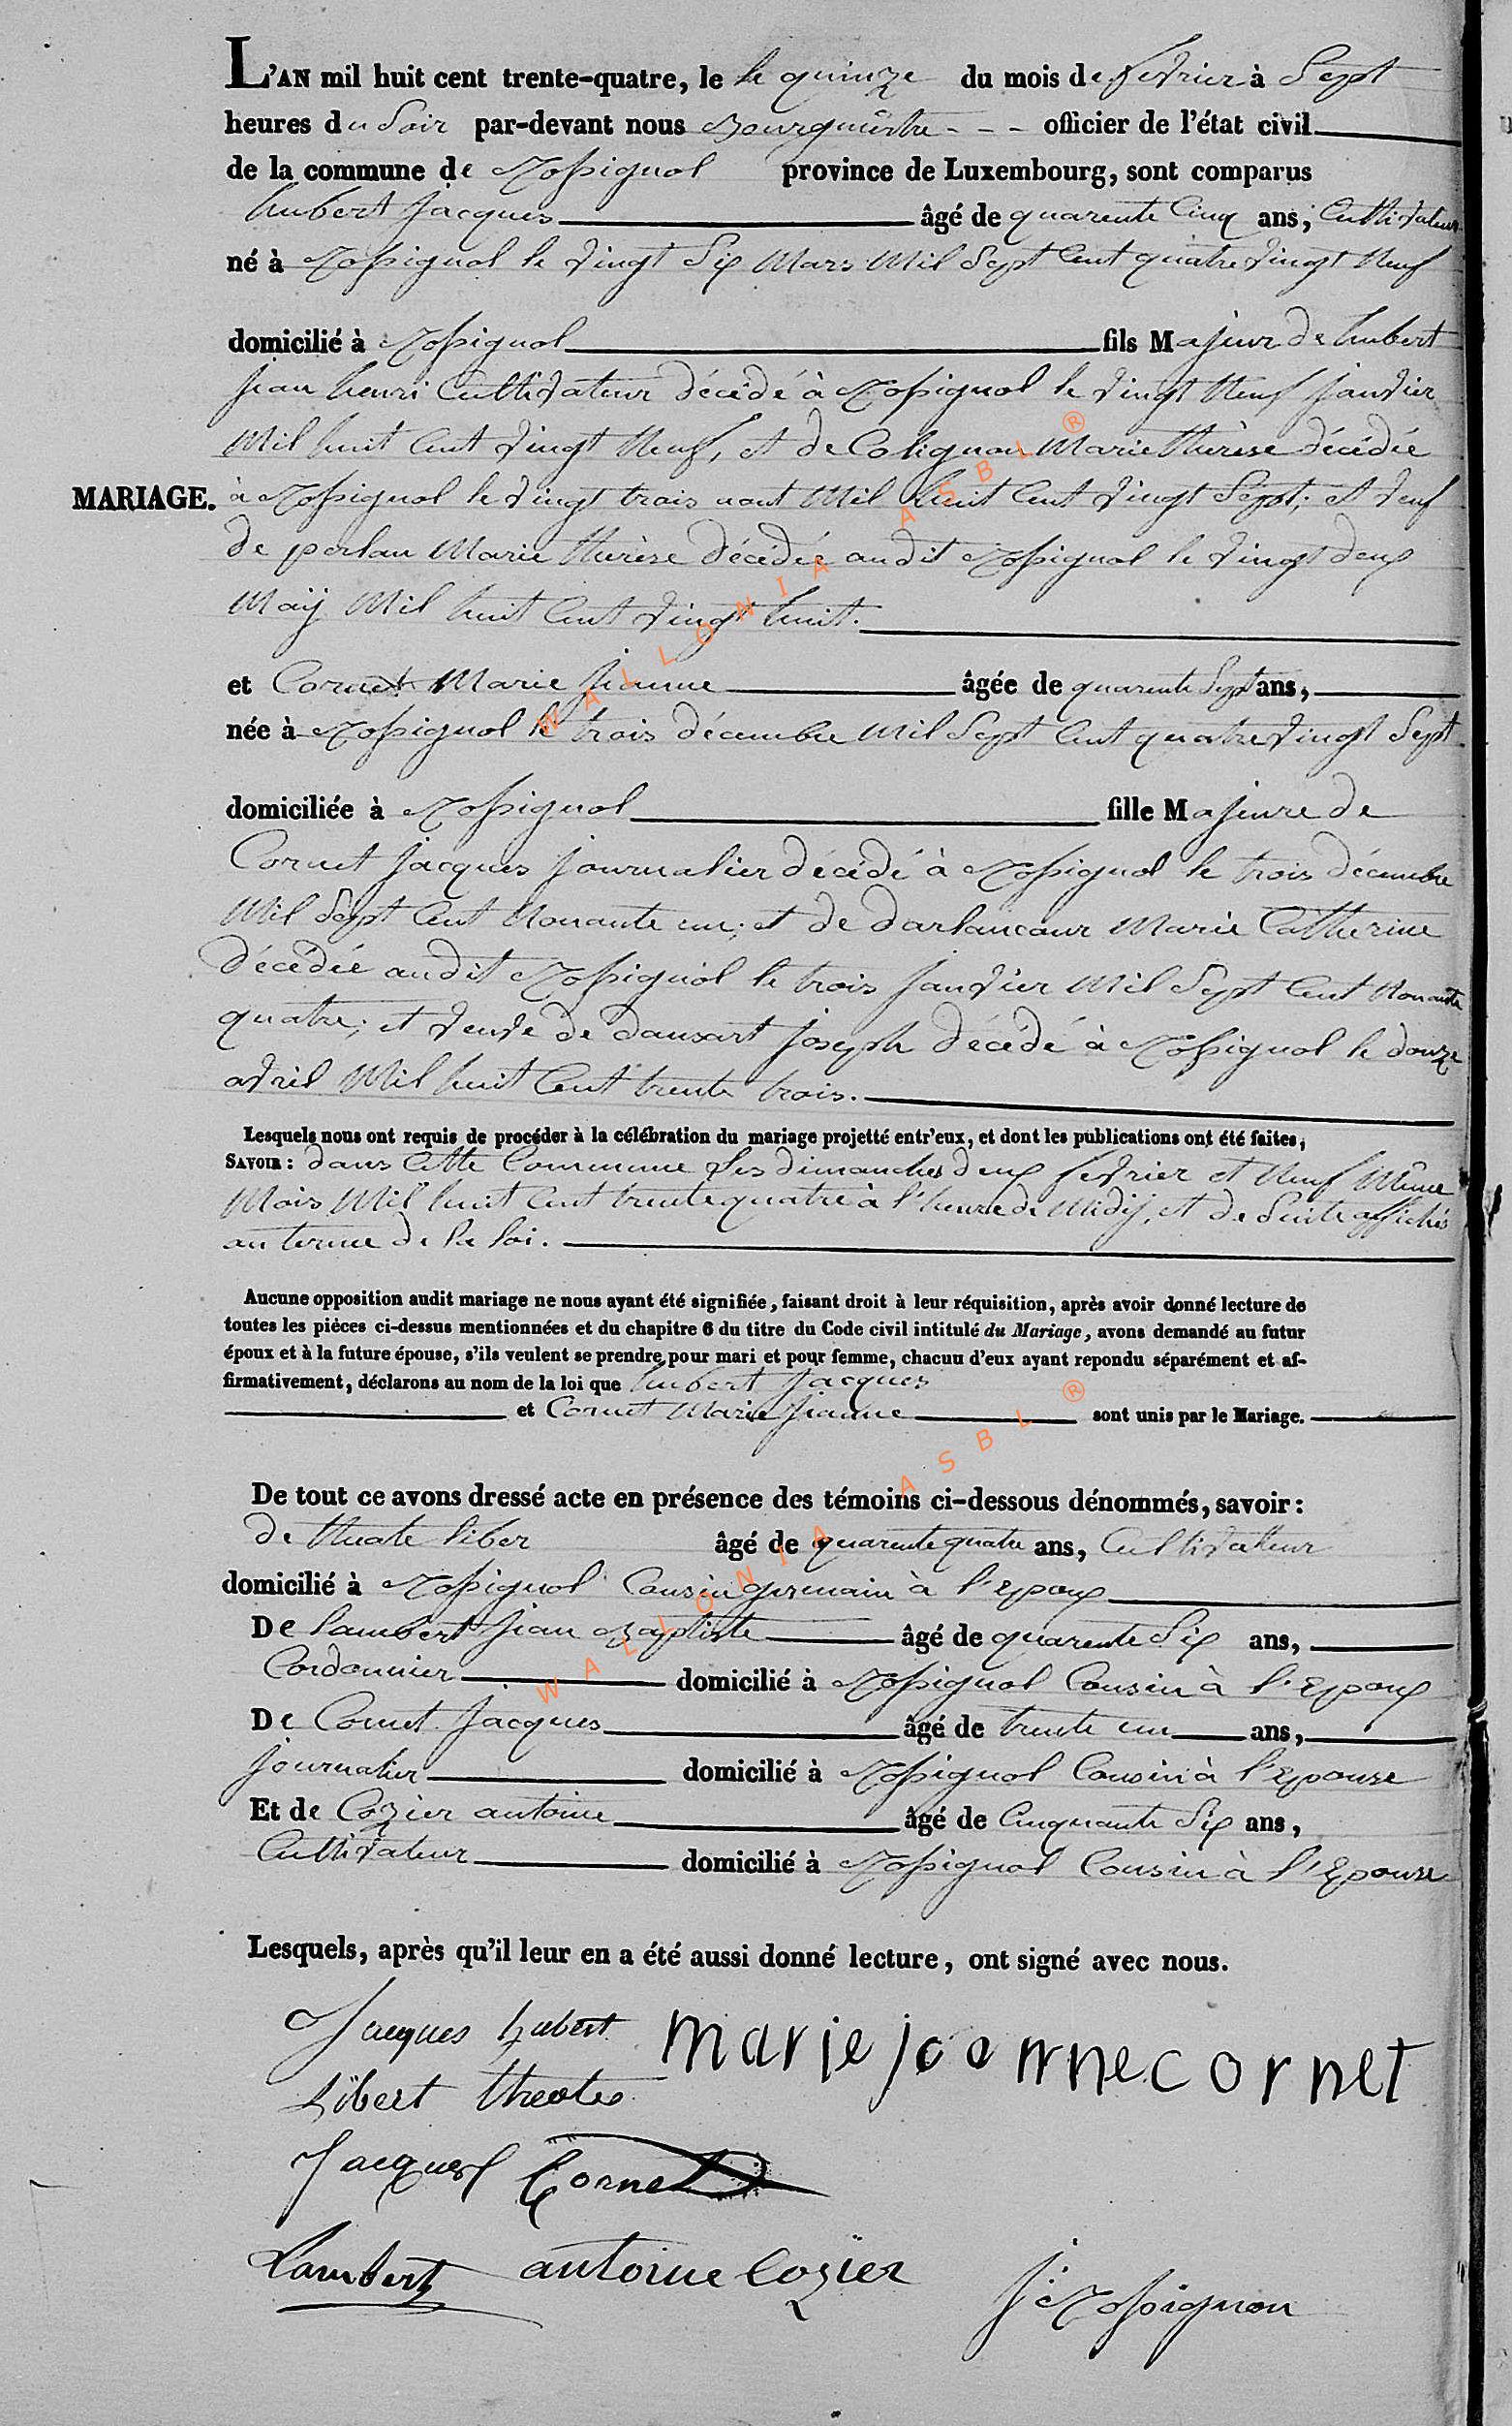 L'AN mil huit cent trente-quatre, le le quinze du mois de fevrier à Sept
heures du Soir par-devant nous Bourguêstre - - - officier de l'état civil
de la commune de Rossignol province de Luxembourg, sont comparus
hubert Jacques âgé de quarente Cinq ans, Cultivateur
né à Rossignol le vingt Six Mars Mil Sept Cent quatre vingt Neuf
domicilié à Rossignol fils Majeur de hubert
jean henri Cultivateur décédé à Rossignol le vingt Neuf janvier
Mil huit Cent vingt Neuf, et de Colignon Marie thérèse décédée
MARIAGE. à Rossignol le vingt trois aout Mil huit Cent vingt Sept; et veuf
de perlau Marie thérèse décédée audit Rossignol le vingt deux
Maÿ Mil huit Cent vingt huit.
et Cornet Marie Jeanne âgée de quarente Sept ans,
née à Rossignol le trois décembre Mil Sept Cent quatre vingt Sept
domiciliée à Rossignol fille Majeure de
Cornet Jacques journalier décédé à Rossignol le trois décembre
Mil Sept Cent Nonante un; et de darlancour Marie Catherine
décédée audit Rossignol le trois janvier Mil Sept Cent Nonante
quatre; et veuve de dansart joseph décédé à Rossignol le douze
avril Mil huit Cent trente trois.
Lesquels nous ont requis de procéder à la célébration du mariage projetté entr'eux, et dont les publications ont été faites,
SAVOIR: dans Cette Commune Les dimanches deux fevrier et Neuf Même
Mois Mil huit Cent trente quatre à l'heure de Midÿ, et de Suite affichés
au terme de la loi.
Aucune opposition audit mariage ne nous ayant été signifiée, faisant droit à leur réquisition, après avoir donné lecture de
toutes les pièces ci-dessus mentionnées et du chapitre 6 du titre du Code civil intitulé du Mariage, avons demandé au futur
époux et à la future épouse, s'ils veulent se prendre pour mari et pour femme, chacuu d'eux ayant repondu séparément et af-
firmativement, déclarons au nom de la loi que hubert Jacques
et Cornet Marie Jeanne sont unis par le Mariage.
De tout ce avons dressé acte en présence des témoins ci-dessous dénommés, savoir:
de theate liber âgé de quarente quatre ans, Cultivateur
domicilié à Rossignol Cousin germain à l'Epoux
De Lambert Jean Baptiste âgé de quarente Six ans,
Cordonnier domicilié à Rossignol Cousin à l'Epoux
De Cornet Jacques âgé de trente un ans,
journalier domicilié à Rossignol Cousin à l'Epouse
Et de Cozier antoine âgé de Cinquante Six ans,
Cultivateur domicilié à Rossignol Cousin à l'Epouse
Lesquels, après qu'il leur en a été aussi donné lecture, ont signé avec nous.
Jacques hubert marie joanne cornet
Libert theate
Jacques Cornet
Lambert antoine Cozier
J: Rossignon
WALLONIA ASBL ®
WALLONIA ASBL ®